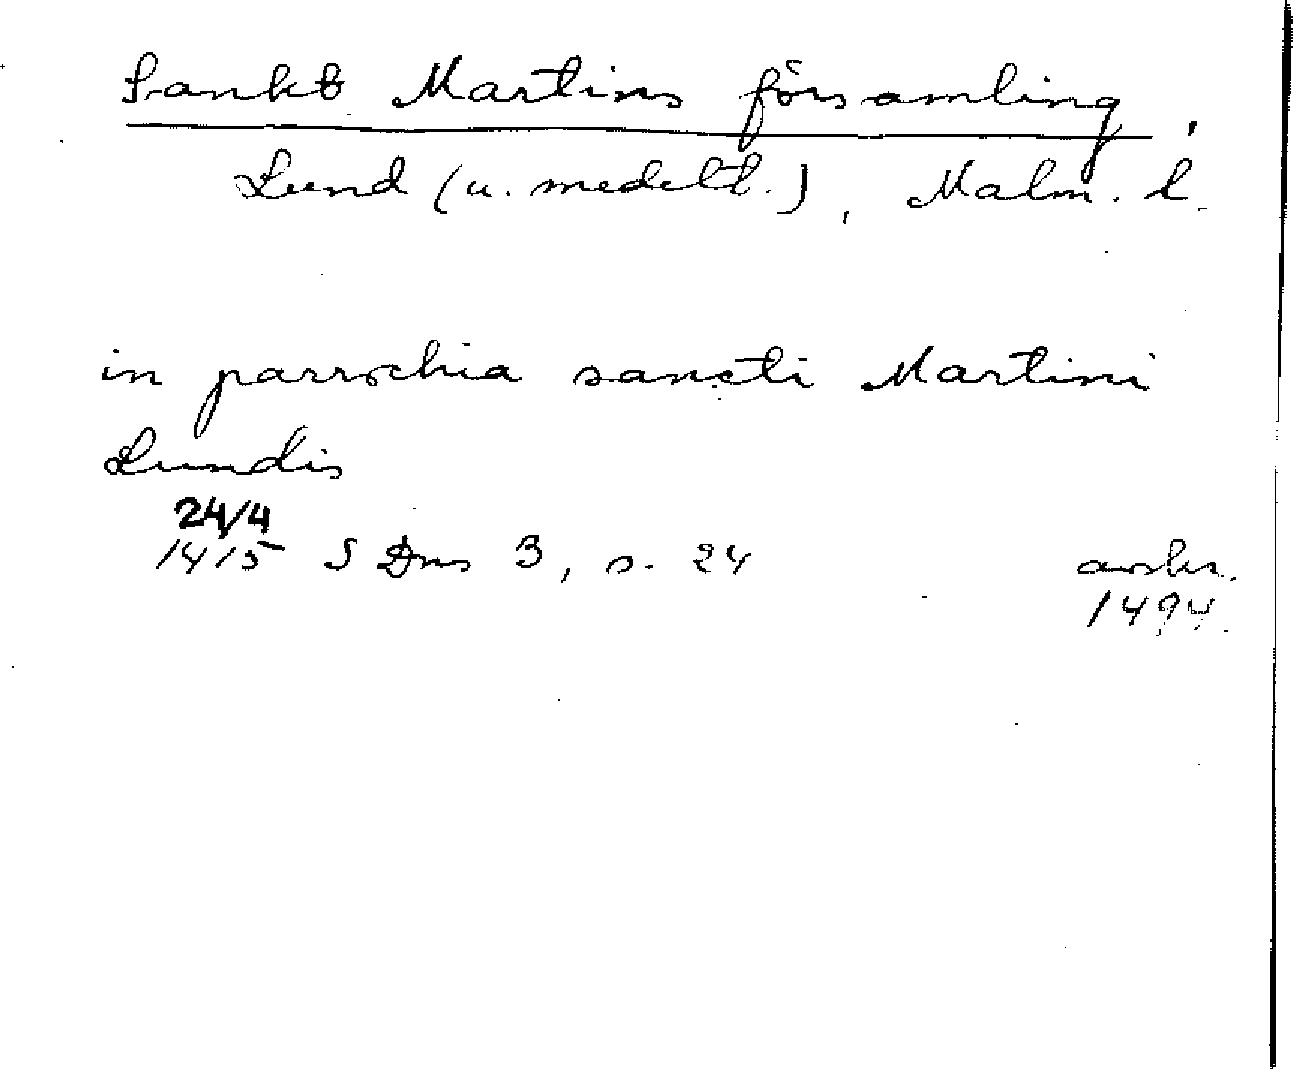 Sankt Martins församling,
Lund (u. medelt.), Malm. l.
in parrochia sancti Martini
Lundis
24/4
1415 S Dns 3, s. 24 avskr.
1494